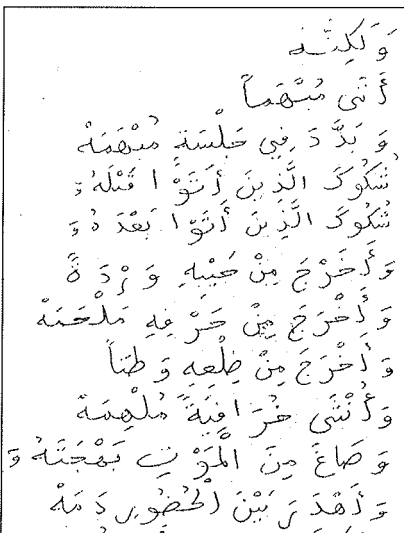 وَلَكِنَّهُ
أَتَى مُتْهَماً
وَبَدَّدَ فِي جَلْسَةٍ مُبْهَمَهْ
شُكُوكَ الَّذِينَ أَتَوْا قَبْلَهُ،
شُكُوكَ الَّذِينَ أَتَوْا بَعْدَهُ،
وَأَخْرَجَ مِنْ جَيْبِهِ وَرْدَةً
وَأَخْرَجَ مِنْ حَرْفِهِ مَلْحَمَهْ
وَأَخْرَجَ مِنْ ضِلْعِهِ وَطَناً
وَأُنْثَى خُرَافِيَةً مُلْهِمَهْ
وَصَاغَ مِنَ الْمَوْتِ بَهْجَتَهُ،
وَأَهْدَرَ بَيْنَ الْحُضُورِ دَمَهْ